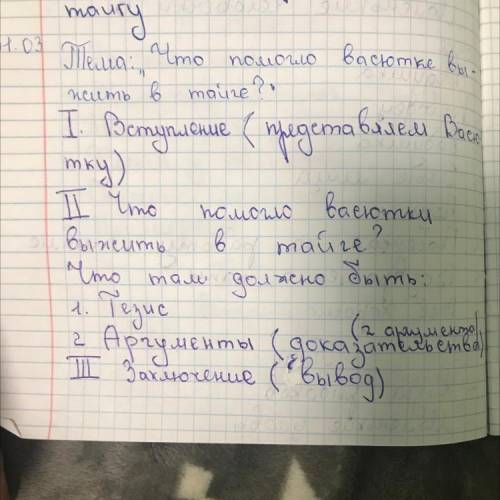 тайгу
1.03
Тема: „Что помогло васютке вы-
жить в тайге?"
I. Вступление (представляем Васю
тку)
II Что помогло васютки
выжить в тайге?
Что там должно быть:
1. Тезис
(2 аргумента)
2 Аргументы (доказательства)
III Заключение (вывод)